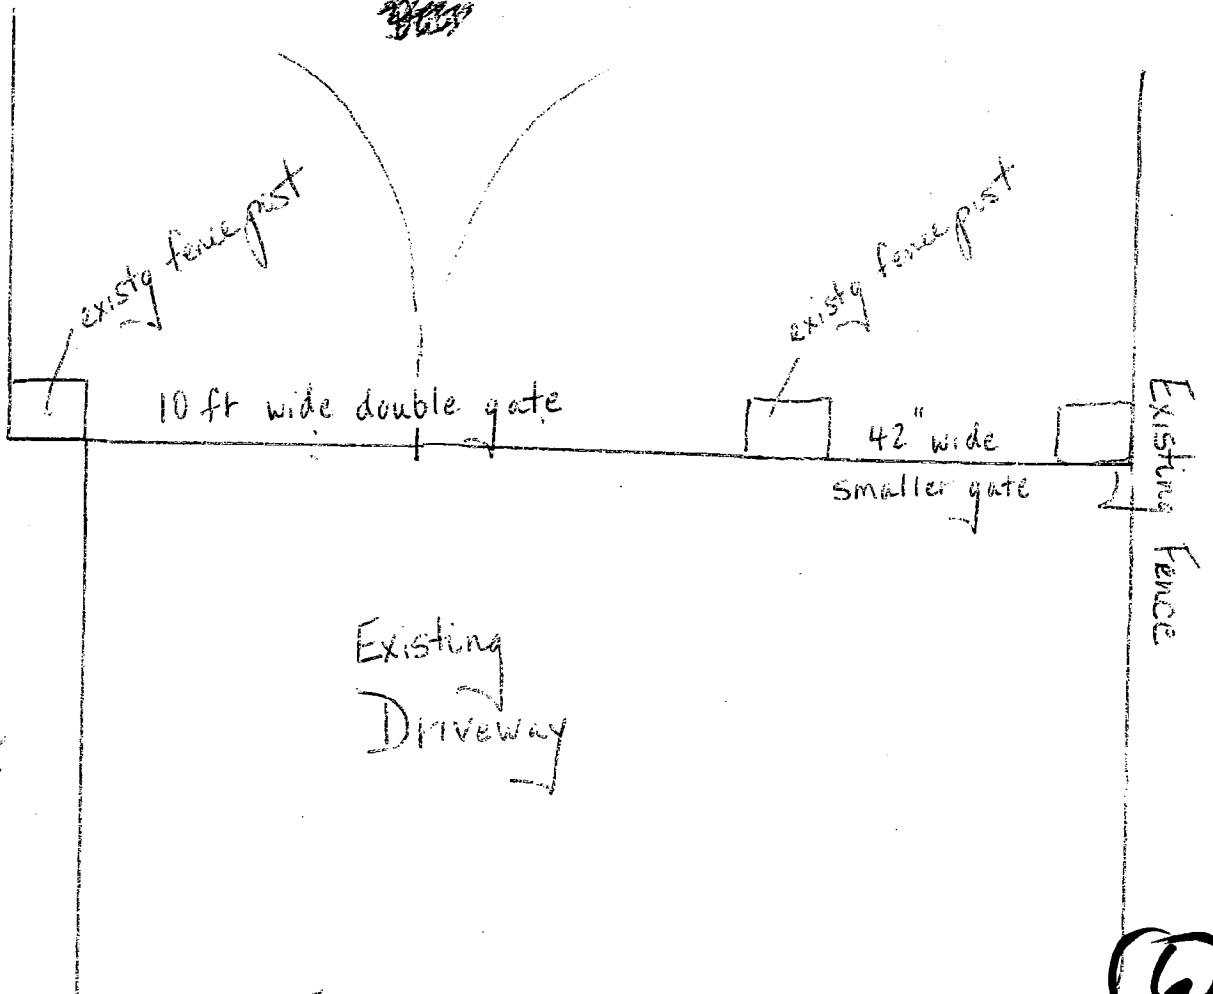 existg fence post
existg fence post
10 ft wide double gate
42" wide
smaller gate
Existing Fence
Existing
Driveway